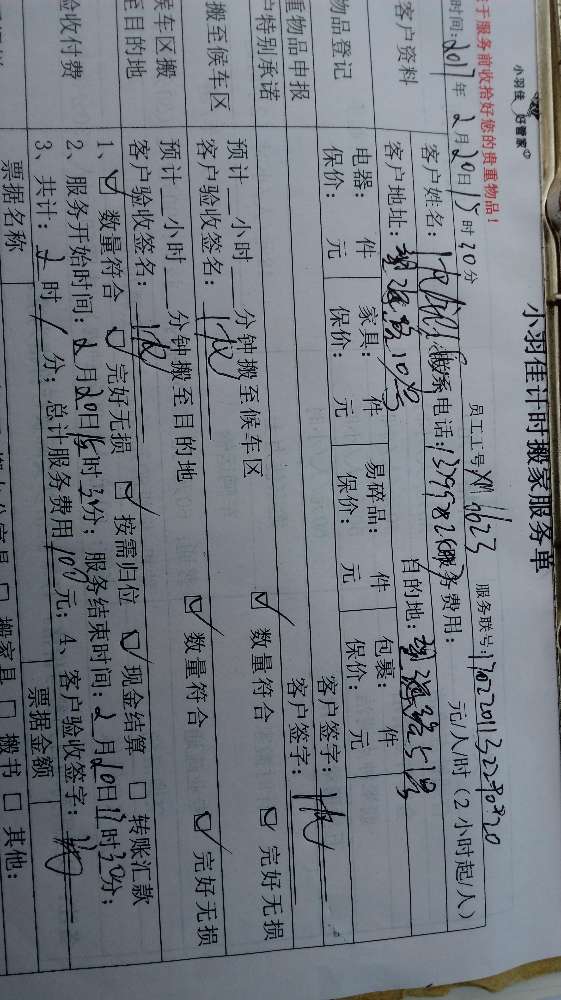 小羽佳 好管家
小羽佳计时搬家服务单
于服务前收拾好您的贵重物品！
员工工号XM1623 服务联号:
时间:2017年2月20日15时30分
客户资料
客户姓名: 联系电话: 服务费用: 元/人/时(2小时起/人)
客户地址: 10号 目的地: 5号
物品登记
电器: 件 家具: 件 易碎品: 件 包裹: 件
保价: 元 保价: 元 保价: 元 保价: 元
重物品申报
客户签字:
户特别承诺
客户签字:
搬至候车区
预计__小时__分钟搬至候车区 ☑ 数量符合 ☑ 完好无损
客户验收签名:
候车区搬
至目的地
预计__小时__分钟搬至目的地 ☑ 数量符合 ☑ 完好无损
客户验收签名:
验收付费
1、☑ 数量符合 ☑ 完好无损 ☑ 按需归位 ☑ 现金结算 □ 转账汇款
2、服务开始时间:2月20日15时30分; 服务结束时间:2月20日17时30分;
3、共计:2时/分; 总计服务费用100元; 4、客户验收签字:
票据名称 票据金额
□ 搬家具 □ 搬书 □ 其他: